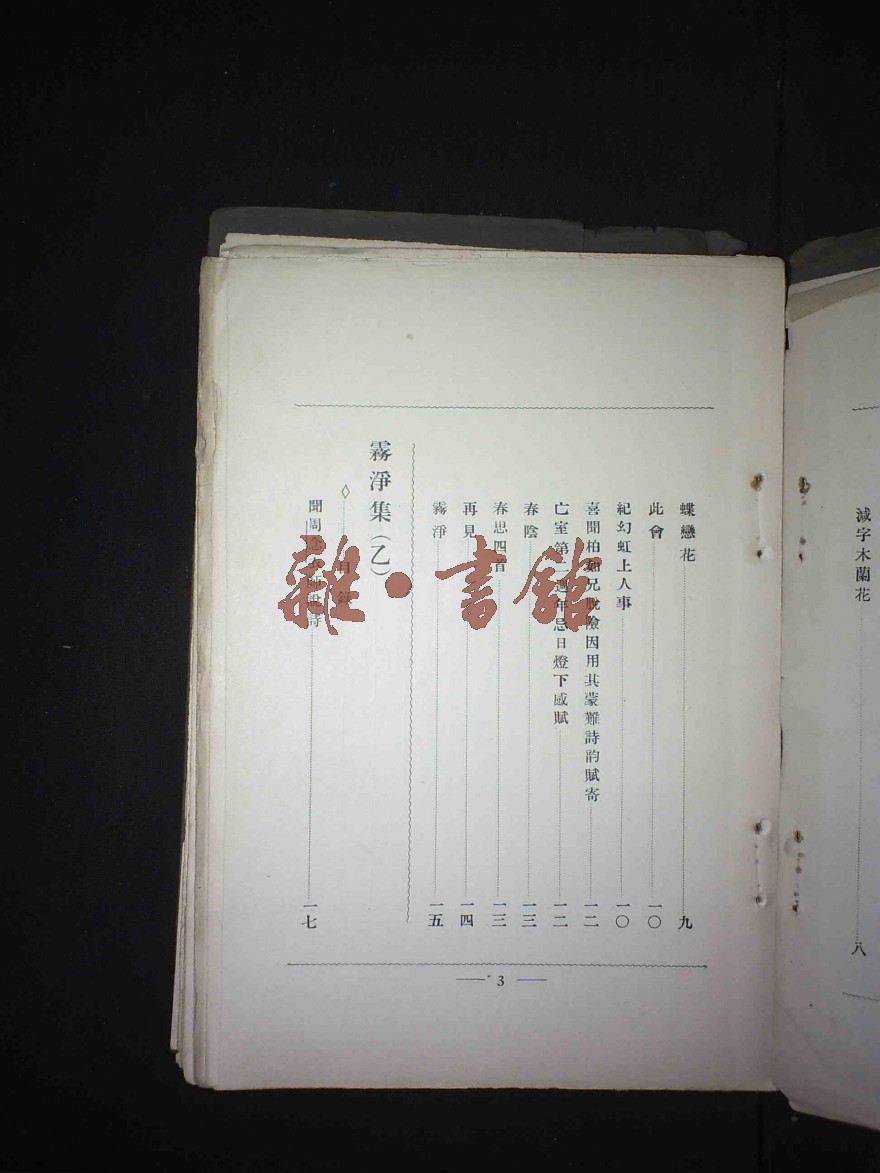 減字木蘭花 八
蝶戀花 九
此會 一〇
紀幻虹上人事 一〇
喜聞柏如兄脫險因用其蒙難詩韵賦寄 一二
亡室第二週年忌日燈下感賦 一二
春陰 一三
春思四首 一三
再見 一四
霧淨 一五
霧淨集(乙)
目錄
聞周念大師說詩 一七
3
雜·書館